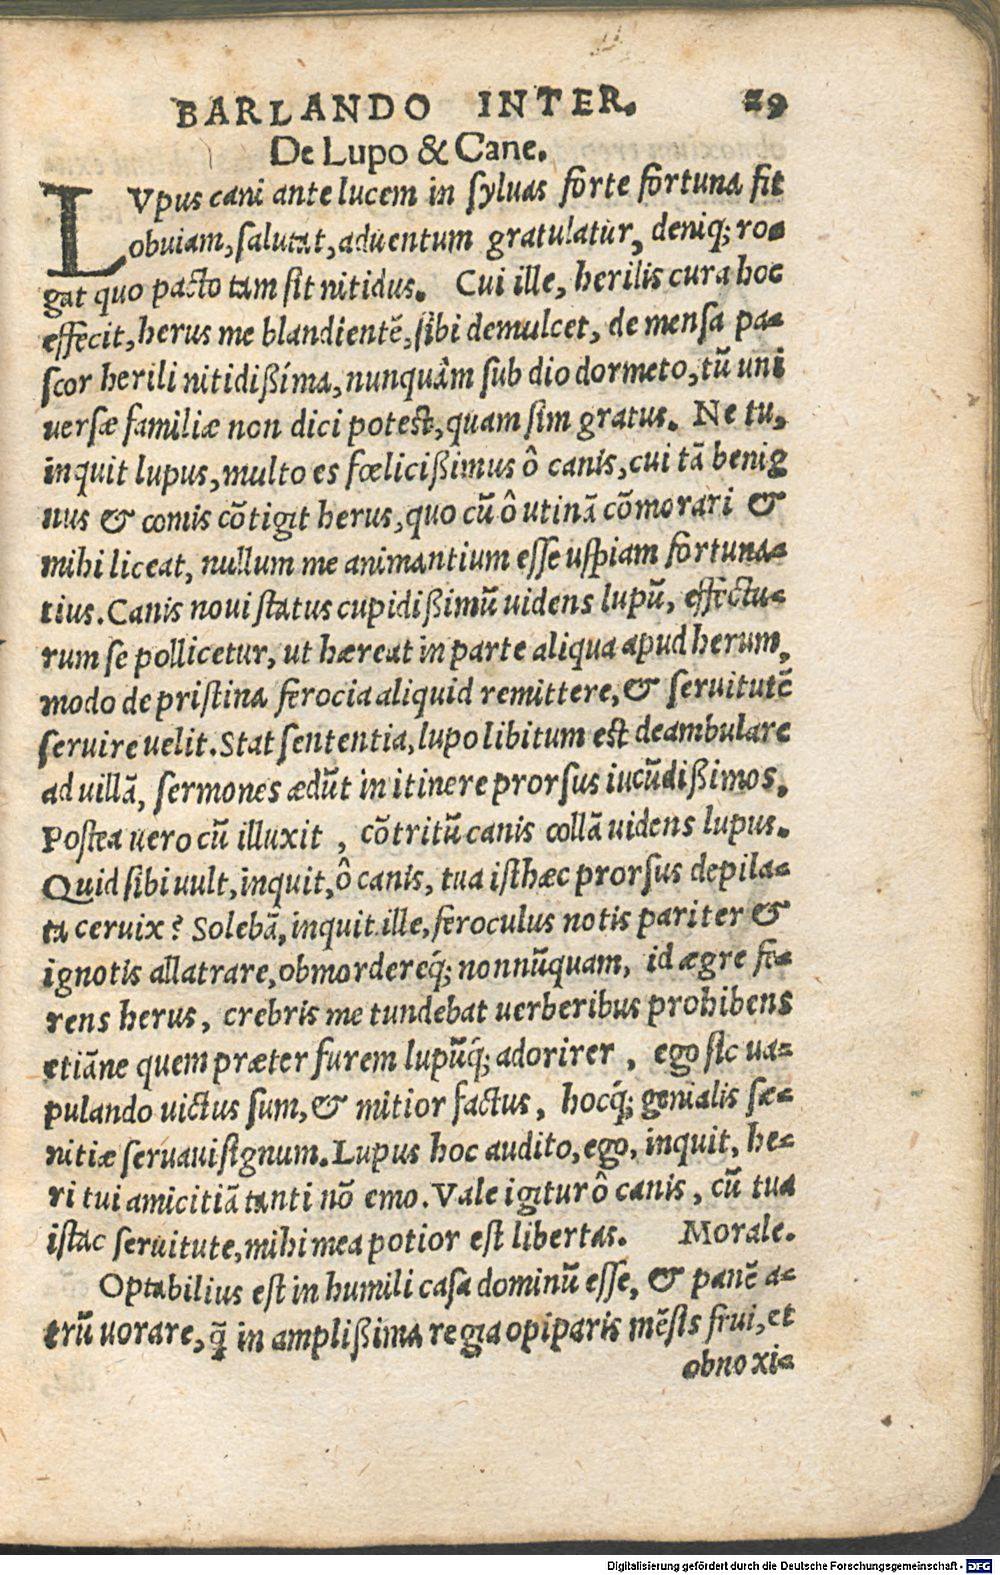 BARLANDO INTER. 29
De Lupo & Cane.
LVpus cani ante lucem in syluas forte fortuna fit
obuiam, salutat, aduentum gratulatur, deniq; ro-
gat quo pacto tam sit nitidus. Cui ille, herilis cura hoc
effecit, herus me blandientē, sibi demulcet, de mensa pa-
scor herili nitidißíma, nunquâm sub dio dormeto, tū uni
uersæ familiæ non dici potest, quam sim gratus. Ne tu,
inquit lupus, multo es fœlicißimus ô canis, cui tā benig
nus & comis cōtigit herus, quo cū ô utinā cōmorari &
mihi liceat, nullum me animantium esse uspiam fortuna-
tius. Canis noui status cupidißimū uidens lupū, effectu-
rum se pollicetur, ut hæreat in parte aliqua apud herum,
modo de pristina ferocia aliquid remittere, & seruitutē
seruire uelit. Stat sententia, lupo libitum est deambulare
ad uillā, sermones ædūt in itinere prorsus iucūdißimos.
Postea uero cū illuxit , cōtritū canis collā uidens lupus.
Quid sibi uult, inquit, ô canis, tua isthæc prorsus depila-
ta ceruix? Solebā, inquit ille, feroculus notis pariter &
ignotis allatrare, obmordereq́; nonnūquam, id ægre fe-
rens herus, crebris me tundebat uerberibus prohibens
etiāne quem præter furem lupūq́; adorirer , ego sic ua-
pulando uictus sum, & mitior factus, hocq́; genialis sæ-
nitiæ seruaui signum. Lupus hoc audito, ego, inquit, he-
ri tui amicitiā tanti nō emo. Vale igitur ô canis, cū tua
istac seruitute, mihi mea potior est libertas. Morale.
Optabilius est in humili casa dominū esse, & panē a-
trū uorare, q̄ in amplißima regia opiparis mēsis frui, et
obnoxi-
Digitalisierung gefördert durch die Deutsche Forschungsgemeinschaft - DFG